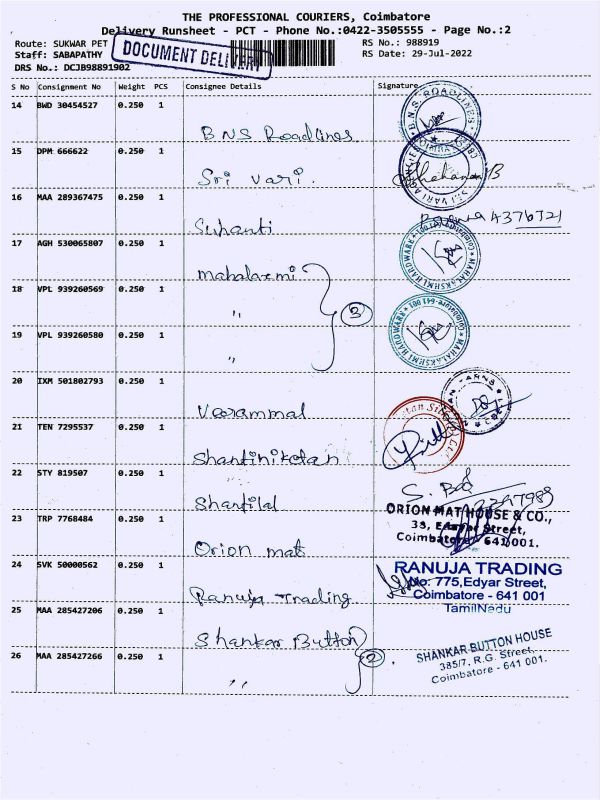 THE PROFESSIONAL COURIERS, Coimbatore
Delivery Runsheet - PCT - Phone No.:0422-3505555 - Page No.:2
Route: SUKWAR PET
RS No.: 988919
Staff: SABAPATHY
DOCUMENT DELIVERY
RS Date: 29-Jul-2022
DRS No.: DCJB98891902
S No Consignment No Weight PCS Consignee Details Signature
14 BWD 30454527 0.250 1
BNS Roadlines
B.N.S. ROADLINES
15 DPM 666622 0.250 1
Sri Vari.
SRI VARI
16 MAA 289367475 0.250 1
Suhanti
17 AGH 530065807 0.250 1
mahalaxmi
MAHALAKSHMI HARDWARE * Coimbatore-641 001 *
18 VPL 939260569 0.250 1
"
3
19 VPL 939260580 0.250 1
"
MAHALAKSHMI HARDWARE * Coimbatore-641 001 *
20 IXM 501802793 0.250 1
YARNS
21 TEN 7295537 0.250 1
Shantiniketan
22 STY 819507 0.250 1
Shantilal
23 TRP 7768484 0.250 1
Orion mat
ORION MAT HOUSE & CO.,
33, Edayar Street,
Coimbatore - 641001.
24 SVK 50000562 0.250 1
Ranuja Trading
RANUJA TRADING
No: 775,Edyar Street,
Coimbatore - 641 001
TamilNadu
25 MAA 285427206 0.250 1
Shankar Button
26 MAA 285427266 0.250 1
"
2
SHANKAR BUTTON HOUSE
385/7, R.G. Street,
Coimbatore - 641 001.